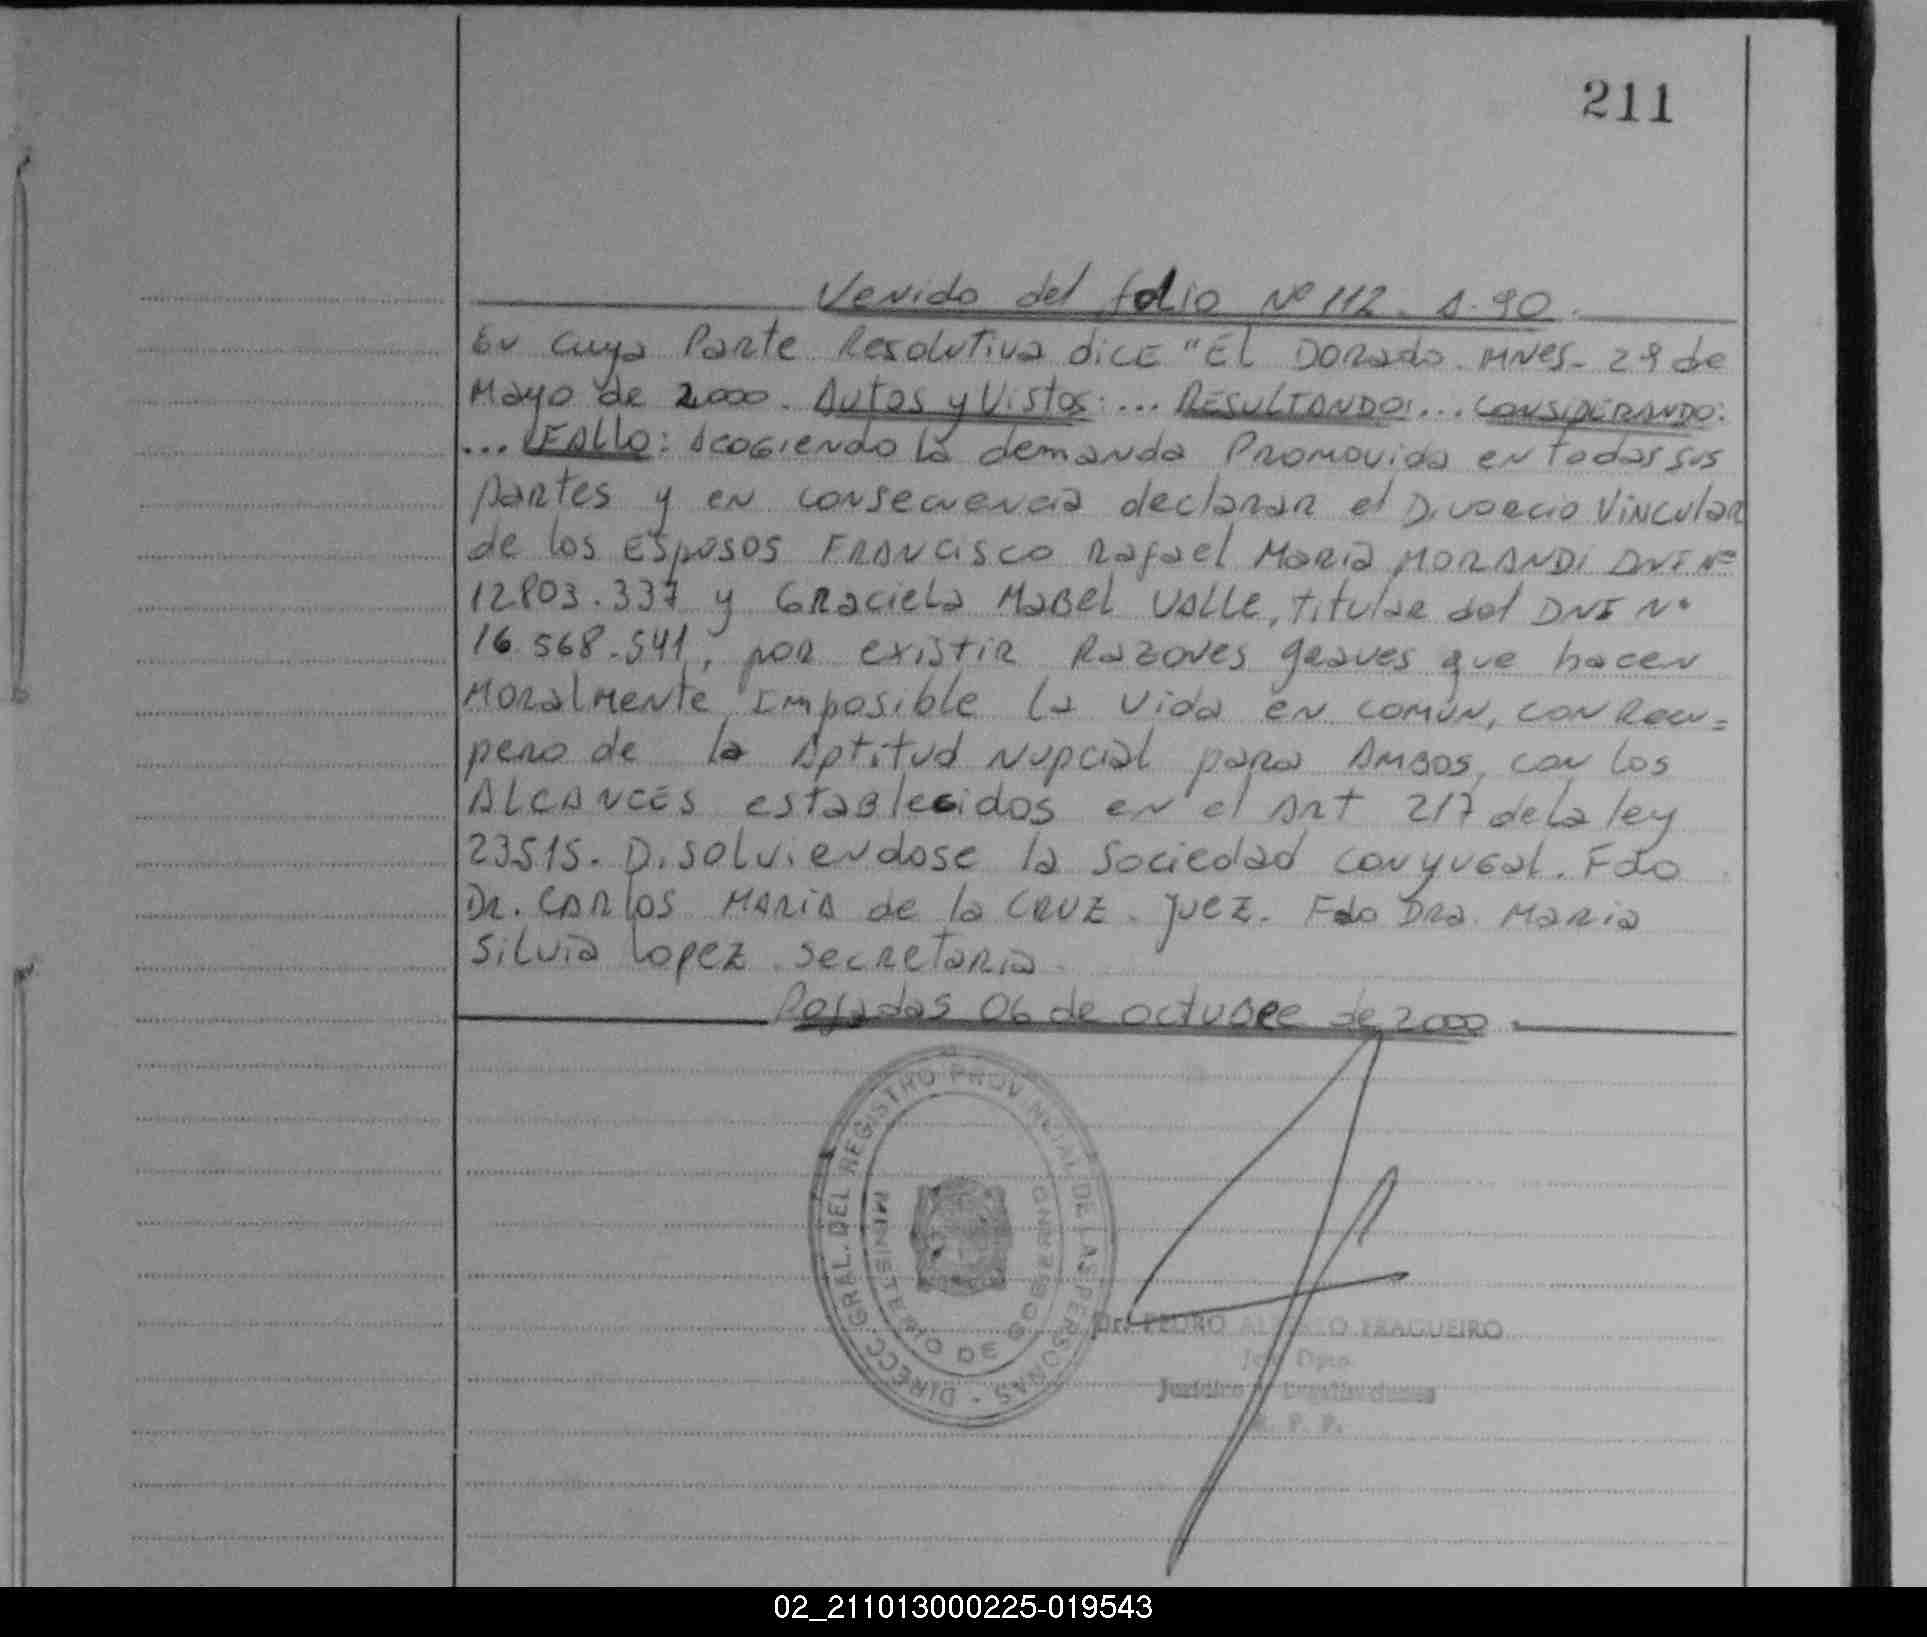 211
Venido del folio Nº 112. A-90.
En cuya Parte Resolutiva dice "El Dorado. Mnes- 29 de
Mayo de 2000. Autos y Vistos: ... RESULTANDO: ... CONSIDERANDO:
... FALLO: Acogiendo la demanda Promovida en todas sus
partes y en consecuencia declarar el Divorcio Vincular
de los Esposos FRANCISCO Rafael Maria MORANDI DNI Nº
12803.337 y Graciela Mabel Valle, titular del DNI Nº
16.568.541, por existir Razones graves que hacen
Moralmente Imposible la vida en comun, con Recu=
pero de la Aptitud Nupcial para Ambos, con los
ALCANCES establecidos en el Art 217 de la ley
23515. Disolviendose la Sociedad conyugal. Fdo
Dr. Carlos Maria de la CRUZ. Juez. Fdo Dra. Maria
Silvia Lopez. Secretaria.
Posadas 06 de octubre de 2000.
DIRECC. GRAL. DEL REGISTRO PROVINCIAL DE LAS PERSONAS -
MINISTERIO DE GOBIERNO
Dr. PEDRO ALFREDO FRAGUEIRO
Jefe Dpto.
Jurídico y
R. P. P.
02_211013000225-019543